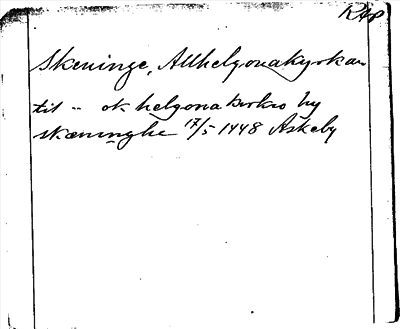 RAP
Skeninge, Allhelgonakyrkan
til - ok helgona kirkio hy
skæninghe 17/5 1448 Askeby